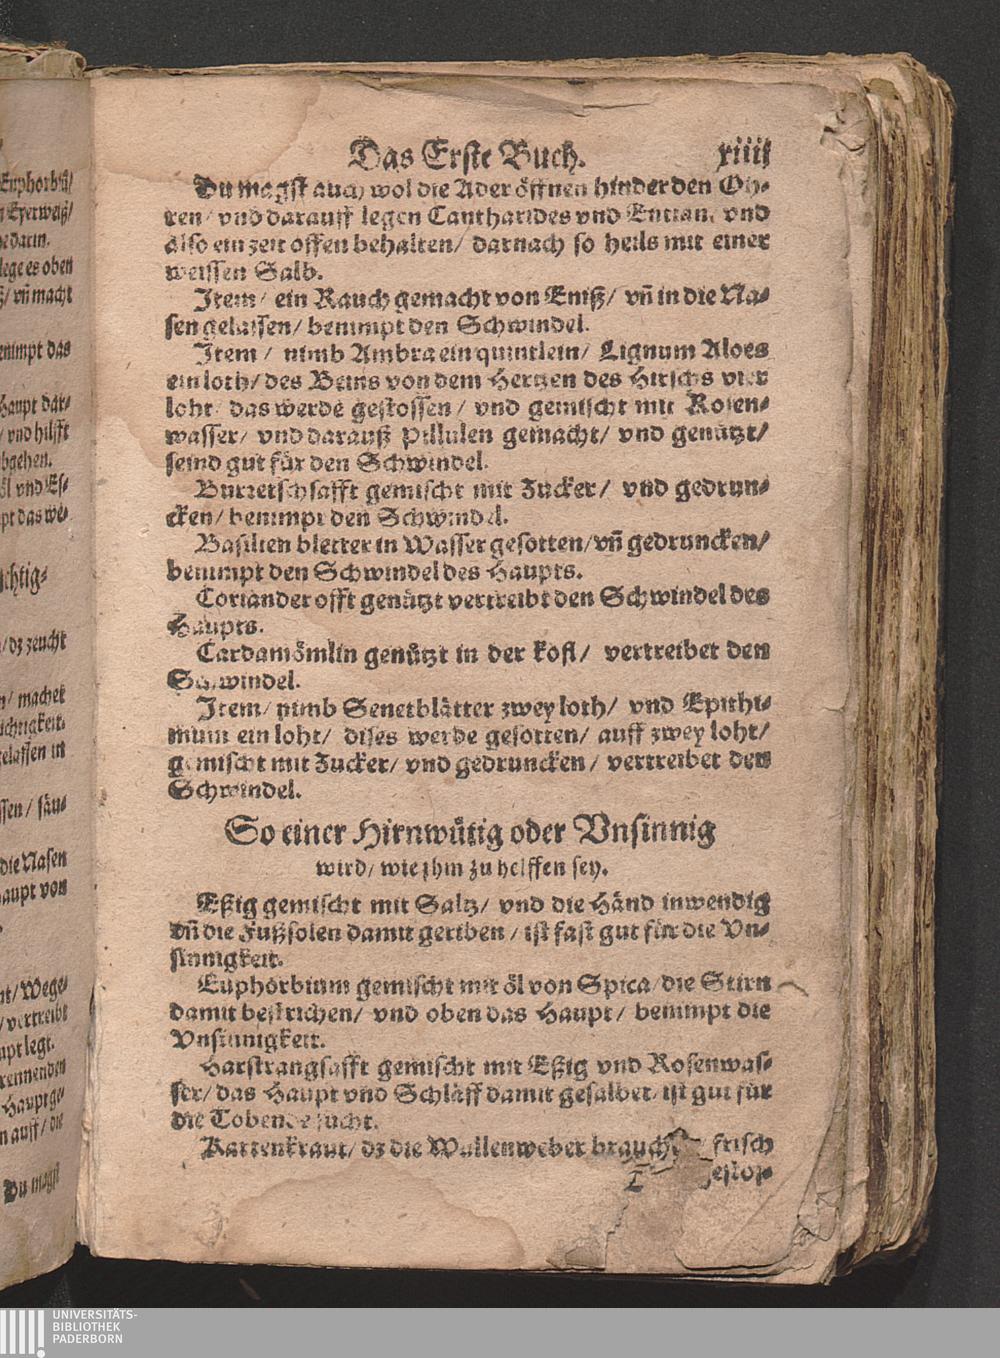 Das Erste Buch. xiiij
Du magst auch wol die Ader öffnen hinder den Oh-
ren / vnd darauff legen Cantharides vnd vnd
also ein zeit offen behalten / darnach so heils mit einer
weissen Salb.
Item / ein Rauch gemacht von Eniß / vñ in die Na-
sen gelassen / benimpt den Schwindel.
Item / nimb Ambra ein quintlein / Lignum Aloes
ein loth / des Beins von dem Hertzen des Hirschs vier
loht / das werde gestossen / vnd gemischt mit Rosen-
wasser / vnd darauß Pillulen gemacht / vnd genützt /
seind gut für den Schwindel.
Burretschsafft gemischt mit Zucker / vnd gedrun-
cken / benimpt den Schwindel.
Basilien bletter in Wasser gesotten / vñ gedruncken /
benimpt den Schwindel des Haupts.
Coriander offt genützt vertreibt den Schwindel des
Haupts.
Cardamömlin genützt in der kost / vertreibet den
Schwindel.
Item / nimb Senetblätter zwey loth / vnd Epithi-
mum ein loht / dises werde gesotten / auff zwey loht /
gemischt mit Zucker / vnd gedruncken / vertreibet den
Schwindel.
So einer Hirnwütig oder Vnsinnig
wird / wie jhm zu helffen sey.
Eßig gemischt mit Saltz / vnd die Händ inwendig
vñ die Fußsolen damit geriben / ist fast gut für die Vn-
sinnigkeit.
Euphorbium gemischt mit öl von Spica / die Stirn
damit bestrichen / vnd oben das Haupt / benimpt die
Vnsinnigkeit.
Harstrangsafft gemischt mit Eßig vnd Rosenwas-
ser / das Haupt vnd Schläff damit gesalbet / ist gut für
die Tobendesucht.
Kartenkraut / dz die Wullenweber / frisch
UNIVERSITÄTS-
BIBLIOTHEK
PADERBORN